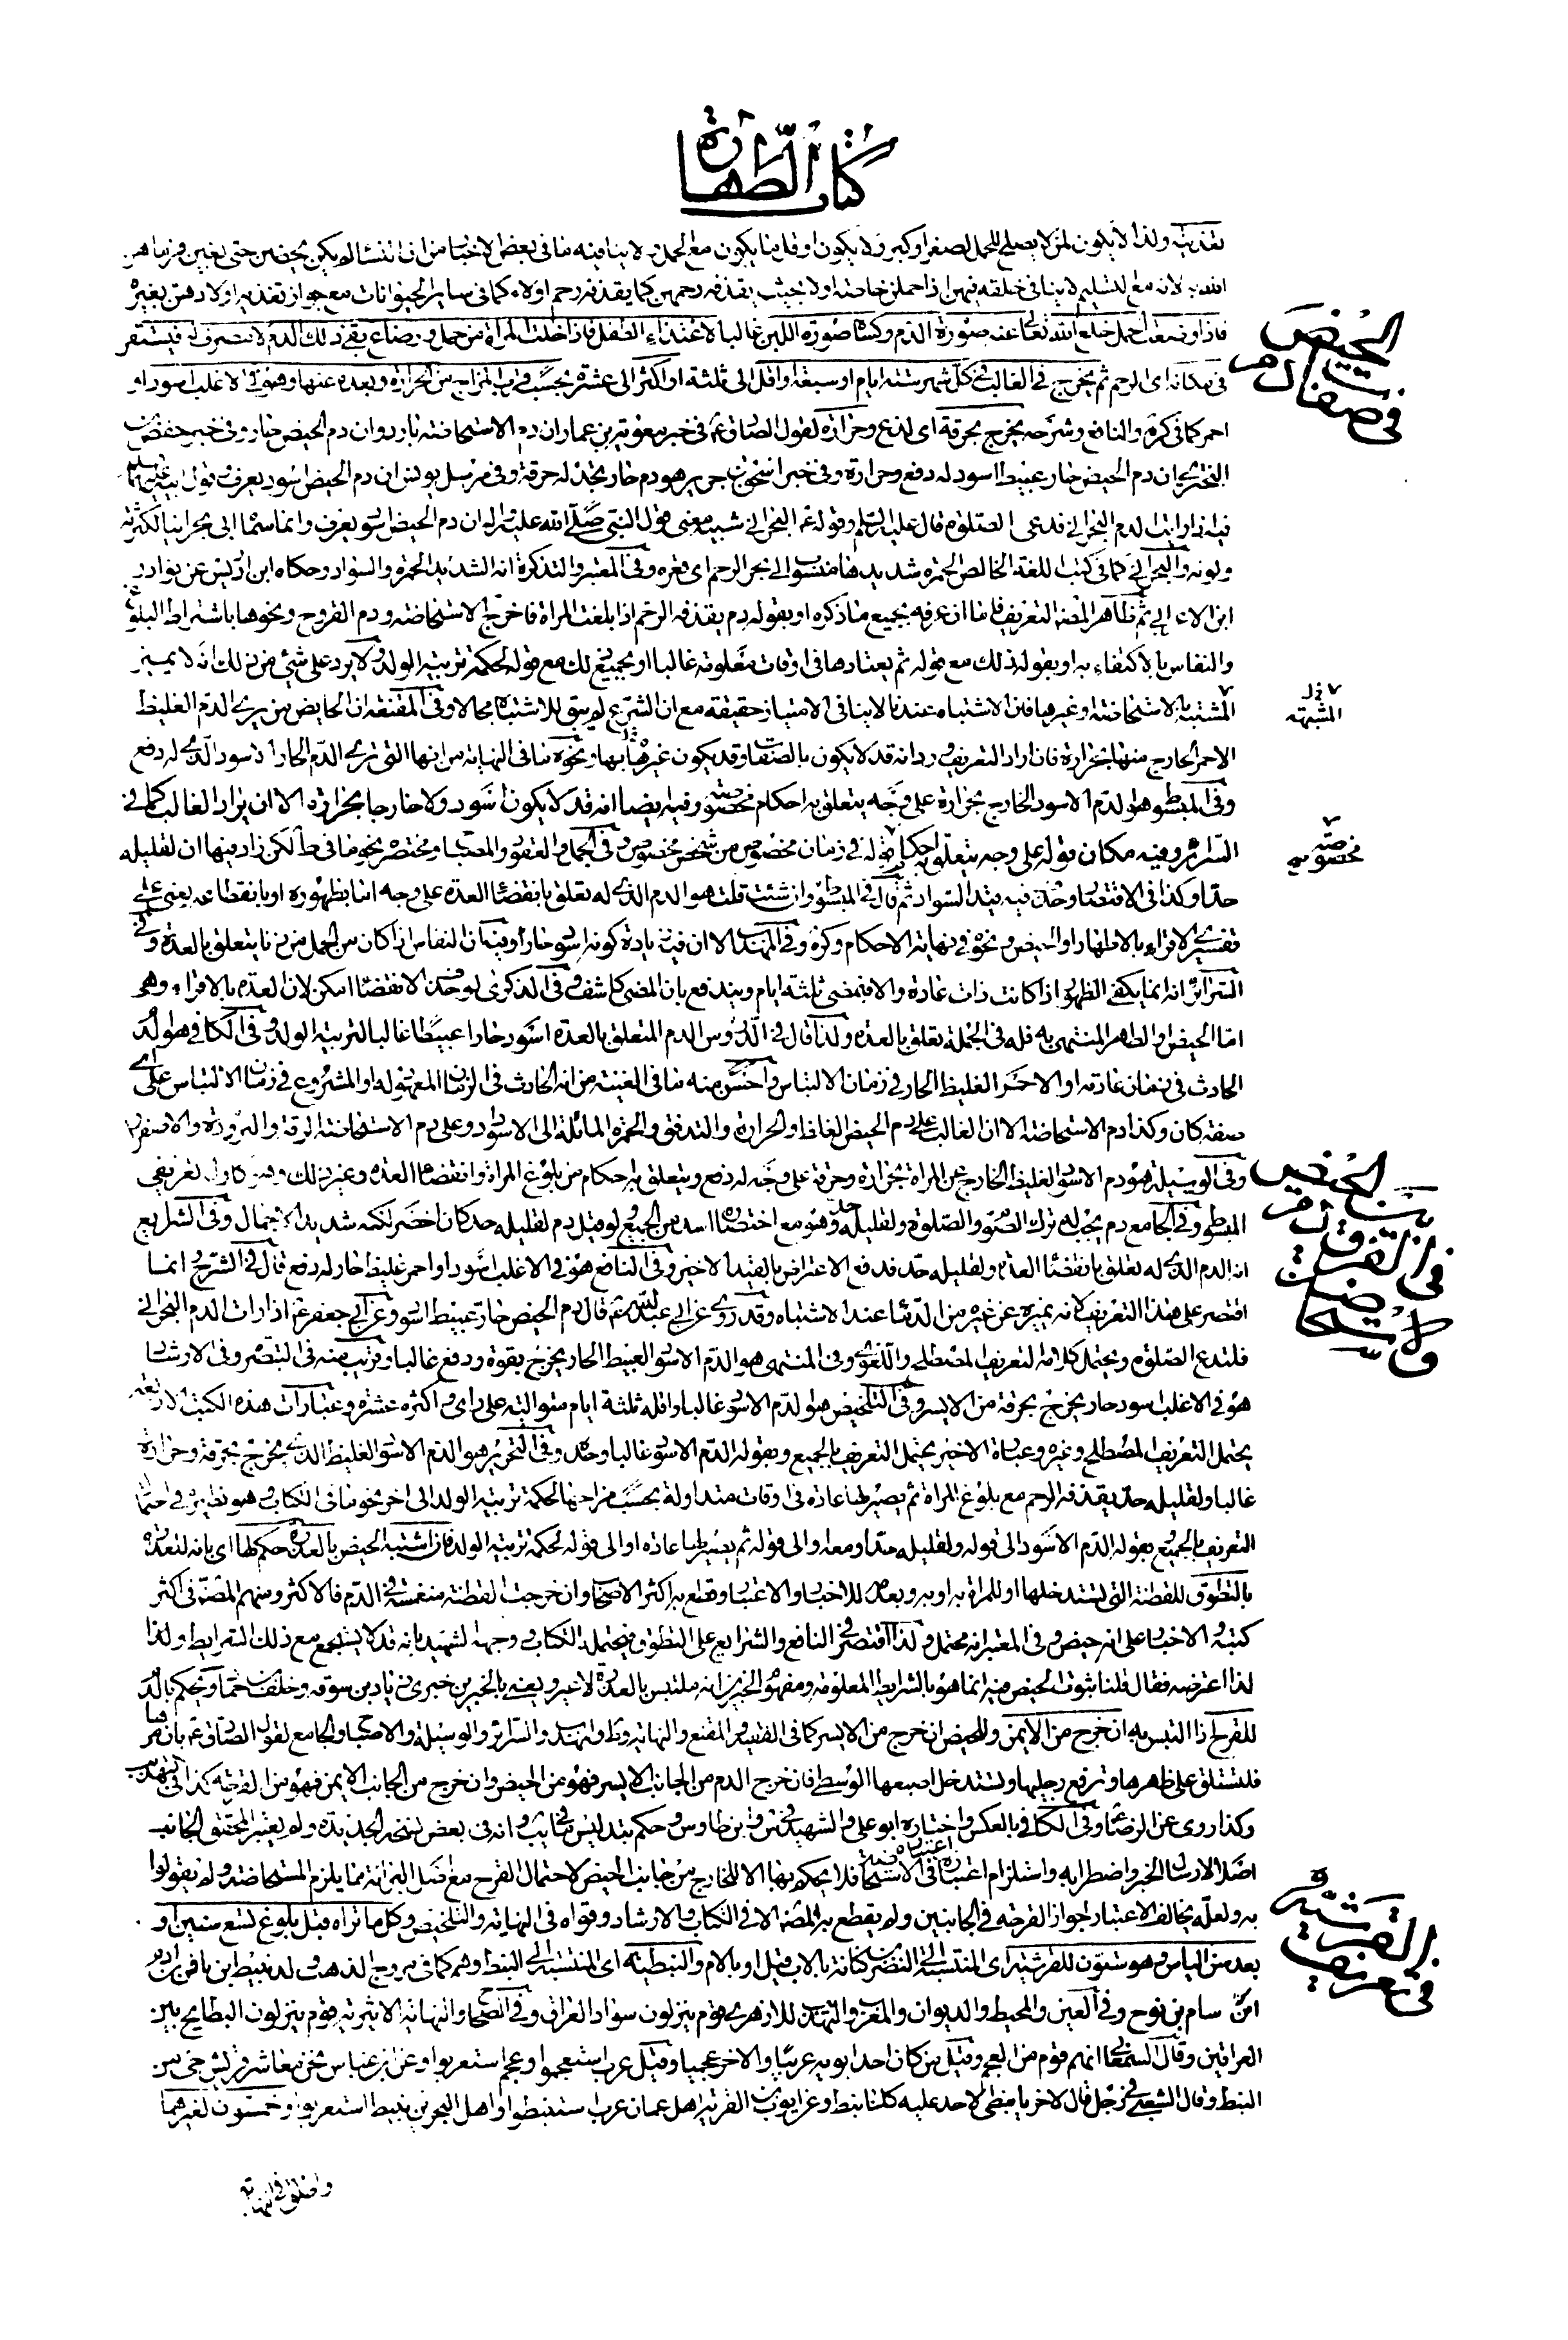 كتاب الطهارة
تغذيته ولذا لا يكون لمن لا يصلح للحمل لصغر او كبر ولا يكون او قلما يكون مع الحمل ولا ينافيه ما في بعض الاخبار من ان نساء لم يكن يحضن حتى
لانه مع التسليم لا ينافي خلقه فيهن اذا حملن خاصة اولا بحيث يقذفه رحمهن كما يقذفه رحم اولاء كما في ساير الحيوانات مع جواز تغذية اولادهن بغيره
فاذا وضعت الحمل خلع الله تعالى عنه صورة الدم وكساه صورة اللبن غالبا لاغتذاء الطفل فاذا خلت المراة من حمل و رضاع بقي ذلك الدم لا تصرف له فيستقر
في مكانه اي الرحم ثم يخرج في الغالب في كل شهر ستة ايام او سبعة او اقل الى ثلثة او اكثر الى عشرة بحسب قرب المزاج من الحرارة وبعده عنها وهو في الاغلب اسود او
احمر كما في كره والنافع وشرحه يخرج بحرقة اي لذع وحرارة لقول الصادق ع في خبر معوية بن عمار ان دم الاستحاضة بارد وان دم الحيض حار وفي خبر حفص بن
البختري ان دم الحيض حار عبيط اسود له دفع وحرارة وفي خبر اسحق بن جرير هو دم حار تجد له حرقة وفي مرسل يونس ان دم الحيض اسود يعرف
فاذا رايت الدم البحراني فدعي الصلوة قال عليه السلام وقوله ع البحراني شبيه معنى قول النبي صلى الله عليه واله ان دم الحيض اسود يعرف وانما سماه ابي بحرانيا لكثرته
ولونه والبحراني كما في كتب اللغة الخالص الحمرة شديدها منسوب الى بحر الرحم اي قعره وفي المعتبر والتذكرة انه الشديد الحمرة والسواد وحكاه ابن ادريس عن نوادر
ابن الاعرابي ثم ظاهر المصنف التعريف فاما ان عرفه بجميع ما ذكره او بقوله دم يقذفه الرحم اذا بلغت المراة فاخرج الاستحاضة ودم القروح ونحوها باشتراط البلوغ
والنفاس بالاكتفاء به او بقوله ذلك مع قوله ثم يعتادها في اوقات معلومة غالبا او بجميع ذلك مع قوله لحكمة تربية الولد ولا يرد على شيئ من ذلك انه لا يميز
المشتبه بالاستحاضة وغيرها فان الاشتباه عندنا لا ينافي الامتياز حقيقة مع ان الشرع لم يبق للاشتباه مجالا وفي المقنعة ان الحايض من يرى الدم الغليظ
الاحمر الخارج منها بحرارة فان اراد التعريف ورد انه قد لا يكون بالصفة وقد يكون غيرها بها ونحوه ما في النهاية من انها التي ترى الدم الحار الاسود الذي له دفع
وفي المبسوط هو الدم الاسود الخارج بحرارة على وجه يتعلق به احكام مخصوصة وفيه ايضا انه قد لا يكون اسود ولا حارا خارجا بحرارة الا ان يراد الغالب كما في
السرائر وفيه مكان قوله على وجه يتعلق به احكام قوله في زمان مخصوص من شخص مخصوص وفي الجمل والعقود والمصباح ومختصره نحو ما في ط لكن زاد فيها ان لقليله
حدا وكذا في الاقتصاد وحذف فيه قيد السواد ثم قال في المبسوط وان شئت قلت هو الدم الذي له تعلق بانقضاء العدة على وجه اما بظهوره او بانقطاعه يعني على
تفسير الاقراء بالاطهار او الحيض ونحوه في نهاية الاحكام وكره وفي المهذب الا ان فيه زيادة كونه اسود حارا وفيه ان النفاس اذا كان من الحمل من زنا يتعلق بالعدة وفي
السرائر انه انما يكفي الظهور اذا كانت ذات عادة والا فبمضي ثلثة ايام ويندفع بان المضي كاشف وفي الذكرى لو حذف الانقضاء امكن لان العدة بالاقراء وهي
اما الحيض والطهر المنتهي به فله في الجملة تعلق بالعدة ولذا قال في الدروس الدم المتعلق بالعدة اسود حارا عبيطا غالبا لتربية الولد وفي الكافي هو الدم
الحادث في زمان عادته او الاحمر الغليظ الحار في زمان الالتباس واحسن منه ما في الغنية من انه الحادث في الزمان المعهود له او المشروع في زمان الالتباس على اي
صفة كان وكذا دم الاستحاضة الا ان الغالب على دم الحيض الغلظ والحرارة والتدفق والحمرة المائلة الى الاسوداد وعلى دم الاستحاضة الرقة والبرودة والاصفرار
وفي الوسيلة هو دم الاسود الغليظ الخارج عن المراة بحرارة وحرقة على وجه له دفع ويتعلق به احكام من بلوغ المراة وانقضاء العدة وغير ذلك وهو كاول تعريفي
المبسوط وفي الجامع دم يجب له ترك الصوم والصلوة ولقليله حد وهو مع اختصاره اسد من الجميع لو قيل دم لقليله حد كان اخصر لكنه شديد الاجمال وفي الشرايع
انه الدم الذي له تعلق بانقضاء العدة ولقليله حد فدفع الاعتراض بالقيد الاخير وفي النافع هو في الاغلب اسود او احمر غليظ حار له دفع قال في الشرح انما
اقتصر على هذا التعريف لانه يميزه عن غيره من الدماء عند الاشتباه وقد روي عن ابي عبد الله ع قال دم الحيض حار عبيط اسود وعن ابي جعفر ع اذا رات الدم البحراني
فلتدع الصلوة ويحتمل كلامه التعريف المصطلح واللغوي وفي المنتهى هو الدم الاسود العبيط الحار يخرج بقوة ودفع غالبا وقريب منه في التبصرة وفي الارشاد
هو في الاغلب اسود حار يخرج بحرقة من الايسر وفي التلخيص هو الدم الاسود غالبا واقله ثلثة ايام متوالية على راي واكثره عشرة وعبارات هذه الكتب الاربعة
يحتمل التعريف المصطلح وغيره وعبارة الاخير يحتمل التعريف بالجميع وبقوله الدم الاسود غالبا وحده وفي التحرير هو الدم الاسود الغليظ الذي يخرج بحرقة وحرارة
غالبا ولقليله حد يقذفه الرحم مع بلوغ المراة ثم يصير لها عادة في اوقات متداولة بحسب مزاجها لحكمة تربية الولد الى اخر نحو ما في الكتاب وهو نظيره في احتمال
التعريف بالجميع بقوله الدم الاسود الى قوله ولقليله حد او معه او الى قوله ثم يصير لها عادة او الى قوله لحكمة تربية الولد فان اشتبه الحيض بالعذرة حكم لها اي بانه لعذرة
بالتطوق للقطنة التي تستدخلها او للمراة به او به وبعدمه للاخبار والاعتبار وقطع به اكثر الاصحاب وان خرجت القطنة منغمسة في الدم فالاكثر ومنهم المصنف في اكثر
كتبه والاخبار على انه حيض وفي المعتبر انه محتمل ولذا اقتصر في النافع والشرايع على التطوق ويحتمله الكتاب ووجهه الشهيد بانه قد لا يستجمع مع ذلك الشرايط ولذا
لذا اعترضه فقال قلنا بثوت الحيض فيه انما هو بالشرايط المعلومة ومفهوم الخبرين انه ملتبس بالعذرة لا غير ويعني بالخبرين خبري زياد بن سوقة وخلف بن حماد ويحكم بالدم
للقرح اذا التبس به ان خرج من الايمن وللحيض ان خرج من الايسر كما في الفقيه والمقنع والنهاية وط والمهذب والسرائر والوسيلة والاصباح والجامع لقول الصادق ع بان مرها
فلتستلق على ظهرها وترفع رجليها وتستدخل اصبعها الوسطى فان خرج الدم من الجانب الايسر فهو من الحيض وان خرج من الجانب الايمن فهو من القرحة كذا في التهذيب
وكذا روى عن الرضا ع وفي الكافي بالعكس واختاره ابو علي والشهيد في س و ابن طاوس وحكم بتدليس في يب وانه في بعض نسخه الجديدة ولم يعتبر المحقق الجانب
اصلا لارسال الخبر واضطرابه واستلزام اعتباره اعتباره في الاستحاضة فلا يحكم بها الا للخارج من جانب الحيض لاحتمال القرح مع فصل البراءة مما يلزم المستحاضة ولم يقولوا
به ولعله يخالف الاعتبار لجواز القرحة في الجانبين ولم يقطع به المصنف الا في الكتاب والارشاد وقواه في النهاية والتلخيص وكل ما تراه قبل بلوغ تسع سنين او
بعد سن الياس وهو ستون للقرشية اي المنتسبة الى النضر بن كنانة بالاب قيل او بالام والنبطية اي المنتسبة الى النبط وهم كما في مروج الذهب ولد نبيط بن
ابن سام بن نوح وفي العين والمحيط والديوان والمغرب والتهذيب للازهري قوم ينزلون سواد العراق وفي الصحاح والنهاية الاثيرية قوم ينزلون البطايح بين
العراقين وقال السمعاني انهم قوم من العجم وقيل من كان احد ابويه عربيا والاخر عجميا وقيل عرب استعجموا او عجم استعربوا وعن ابن عباس نحن معاشر قريش حي من
النبط وقال الشعبي في رجل قال لاخر يا نبطي لا حد عليه كلنا نبط وعن ايوب بن القرية اهل عمان عرب استنبطوا واهل البحرين نبيط استعربوا وخمسون لغيرهما
واطلق في النهاية
الحيض
في صفات دم
خ ل
المشبهة
مخصوصة
في الفرق بين دم الحيض
والاستحاضة
في تعريف القرشية